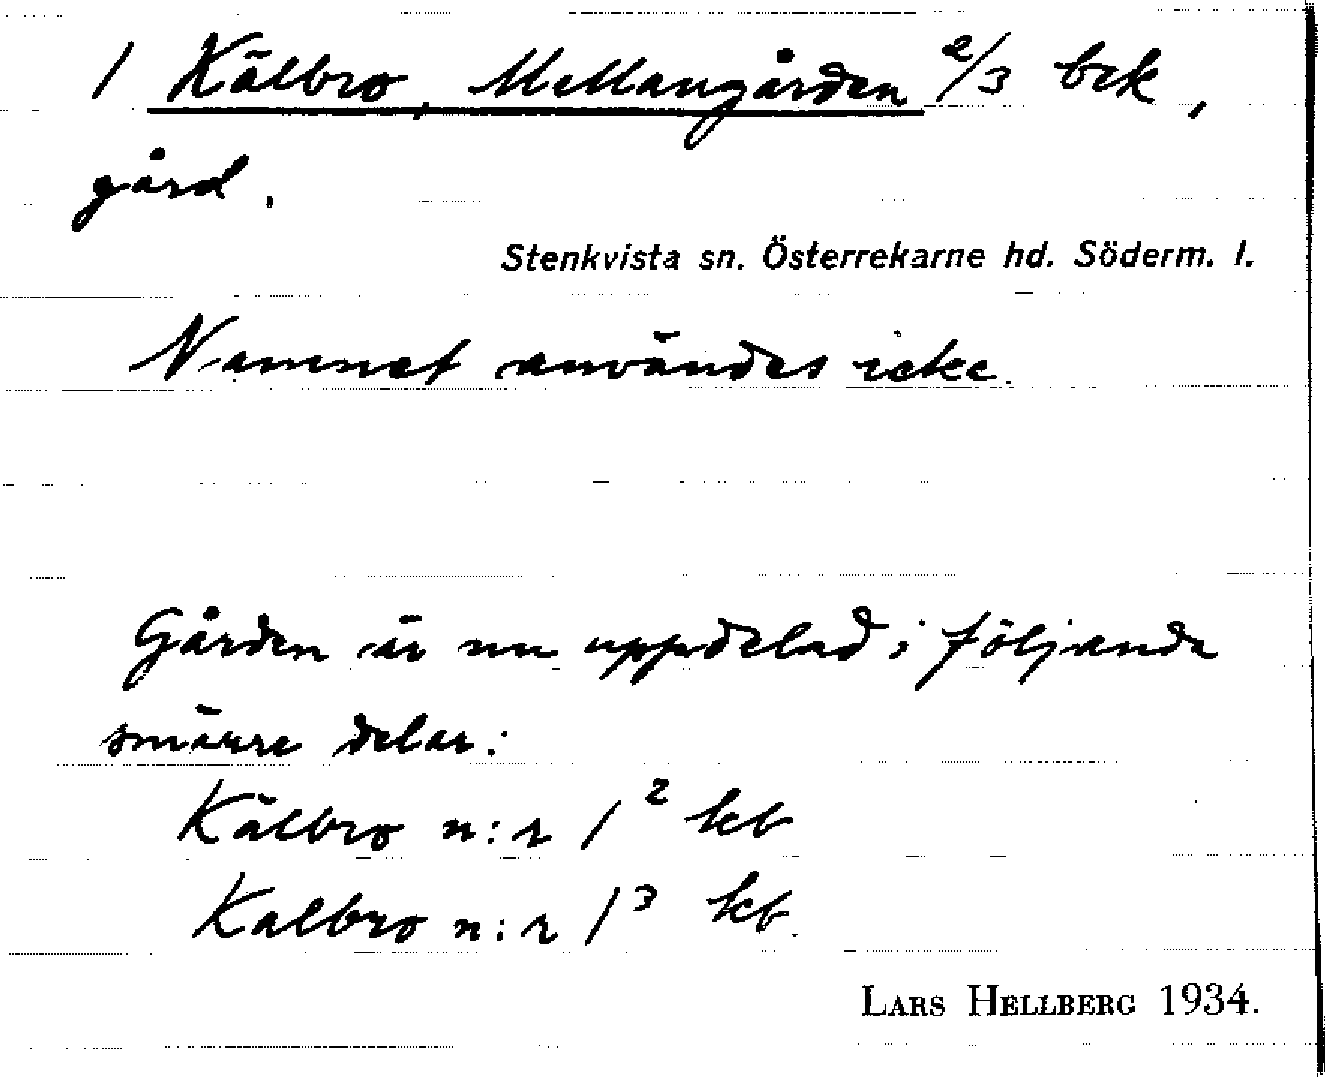 1 Kälbro, Mellangården 2/3 bek,
gård.
Stenkvista sn. Österrekarne hd. Söderm. l.
Namnet användes icke.
Gården är nu uppdelad i följande
smärre delar:
Kälbro n:r 1² kb
Kalbro n:r 1³ kb.
LARS HELLBERG 1934.